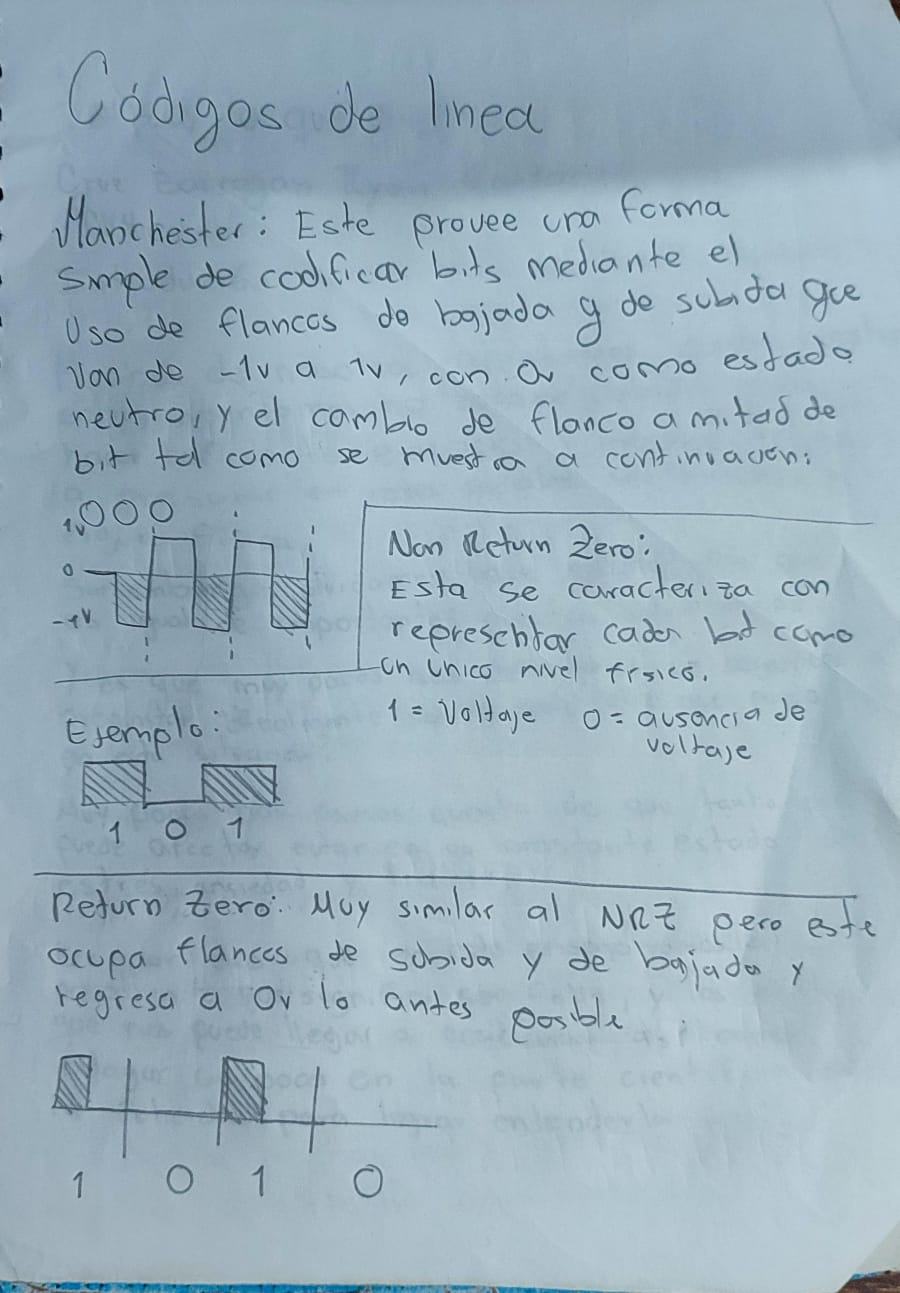 Códigos de linea
Manchester: Este provee una forma
Simple de codificar bits mediante el
Uso de flancos de bajada y de subida que
Van de -1v a 1v, con 0v como estado
neutro, y el cambio de flanco a mitad de
bit tal como se muestra a continuación:
1v 000
0
-1v
Non Return Zero:
Esta se caracteriza con
representar cada bit como
un unico nivel físico.
1 = Voltaje 0 = ausencia de
voltaje
Ejemplo:
1 0 1
Return Zero: Muy similar al NRZ pero este
ocupa flancos de subida y de bajada y
regresa a 0v lo antes posible.
1 0 1 0